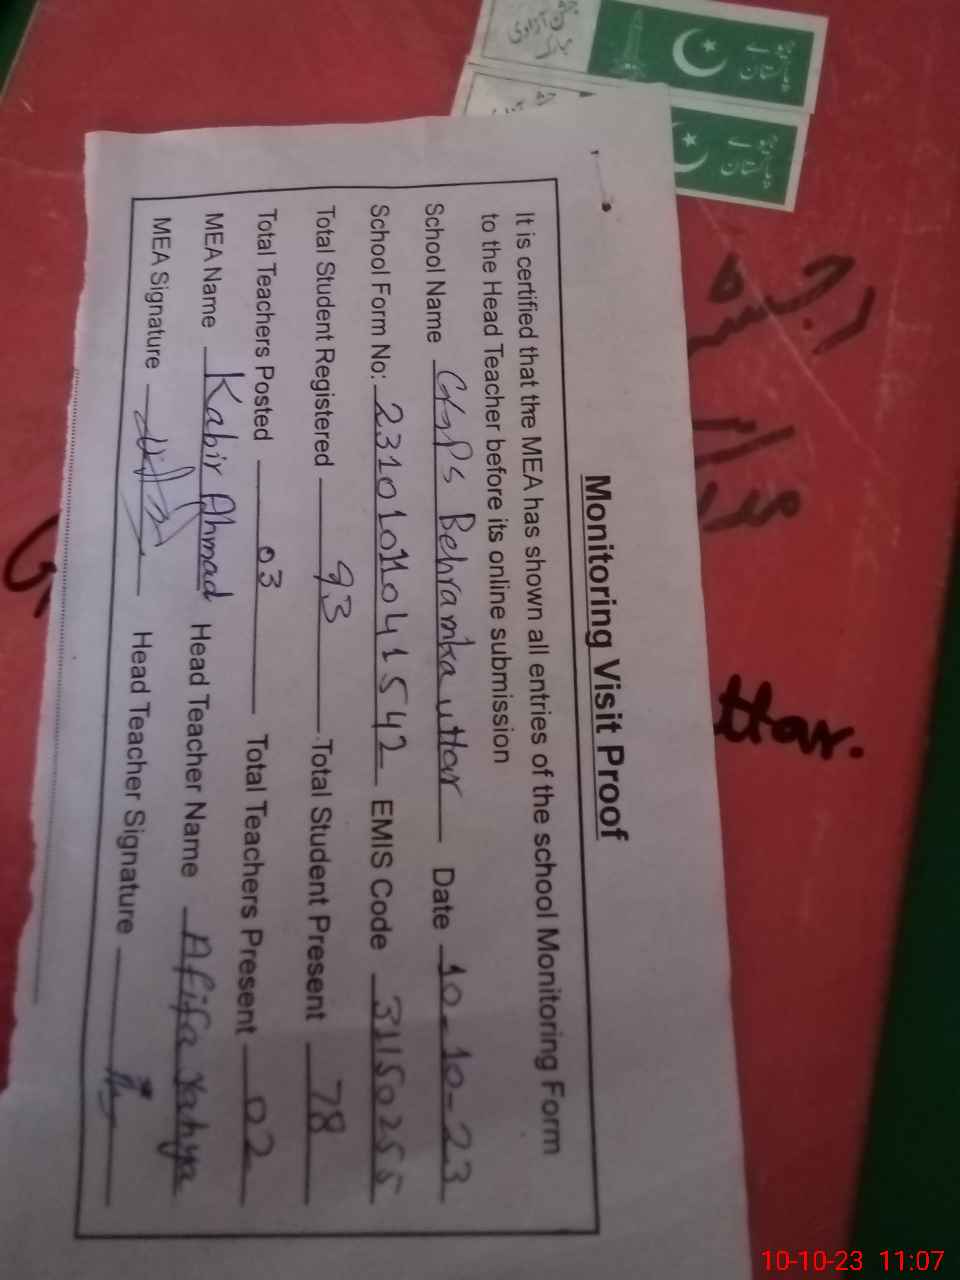 Monitoring Visit Proof
It is certified that the MEA has shown all entries of the school Monitoring Form
to the Head Teacher before its online submission
School Name GGPS Behramka uttar Date 10-10-23
School Form No: 2310101041542 EMIS Code 31150255
Total Student Registered 93 Total Student Present 78
Total Teachers Posted 03 Total Teachers Present 02
MEA Name Kabir Ahmad Head Teacher Name Afifa Yahya
MEA Signature Head Teacher Signature
جشن آزادی
مبارک
ttar.
10-10-23 11:07